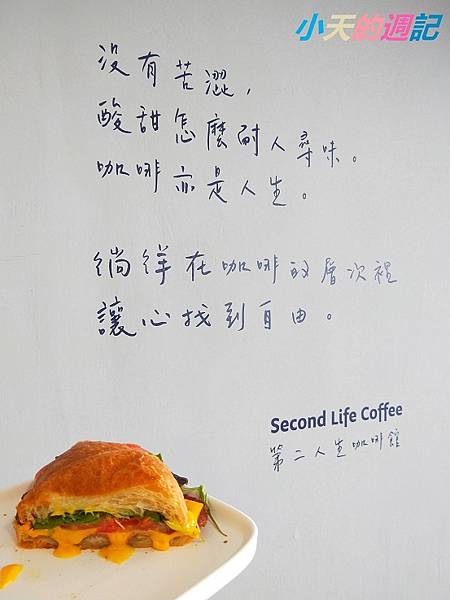 小天的週記
沒有苦澀，
酸甜怎麼耐人尋味。
咖啡亦是人生。
徜徉在咖啡的層次裡
讓心找到自由。
Second Life Coffee
第二人生咖啡館